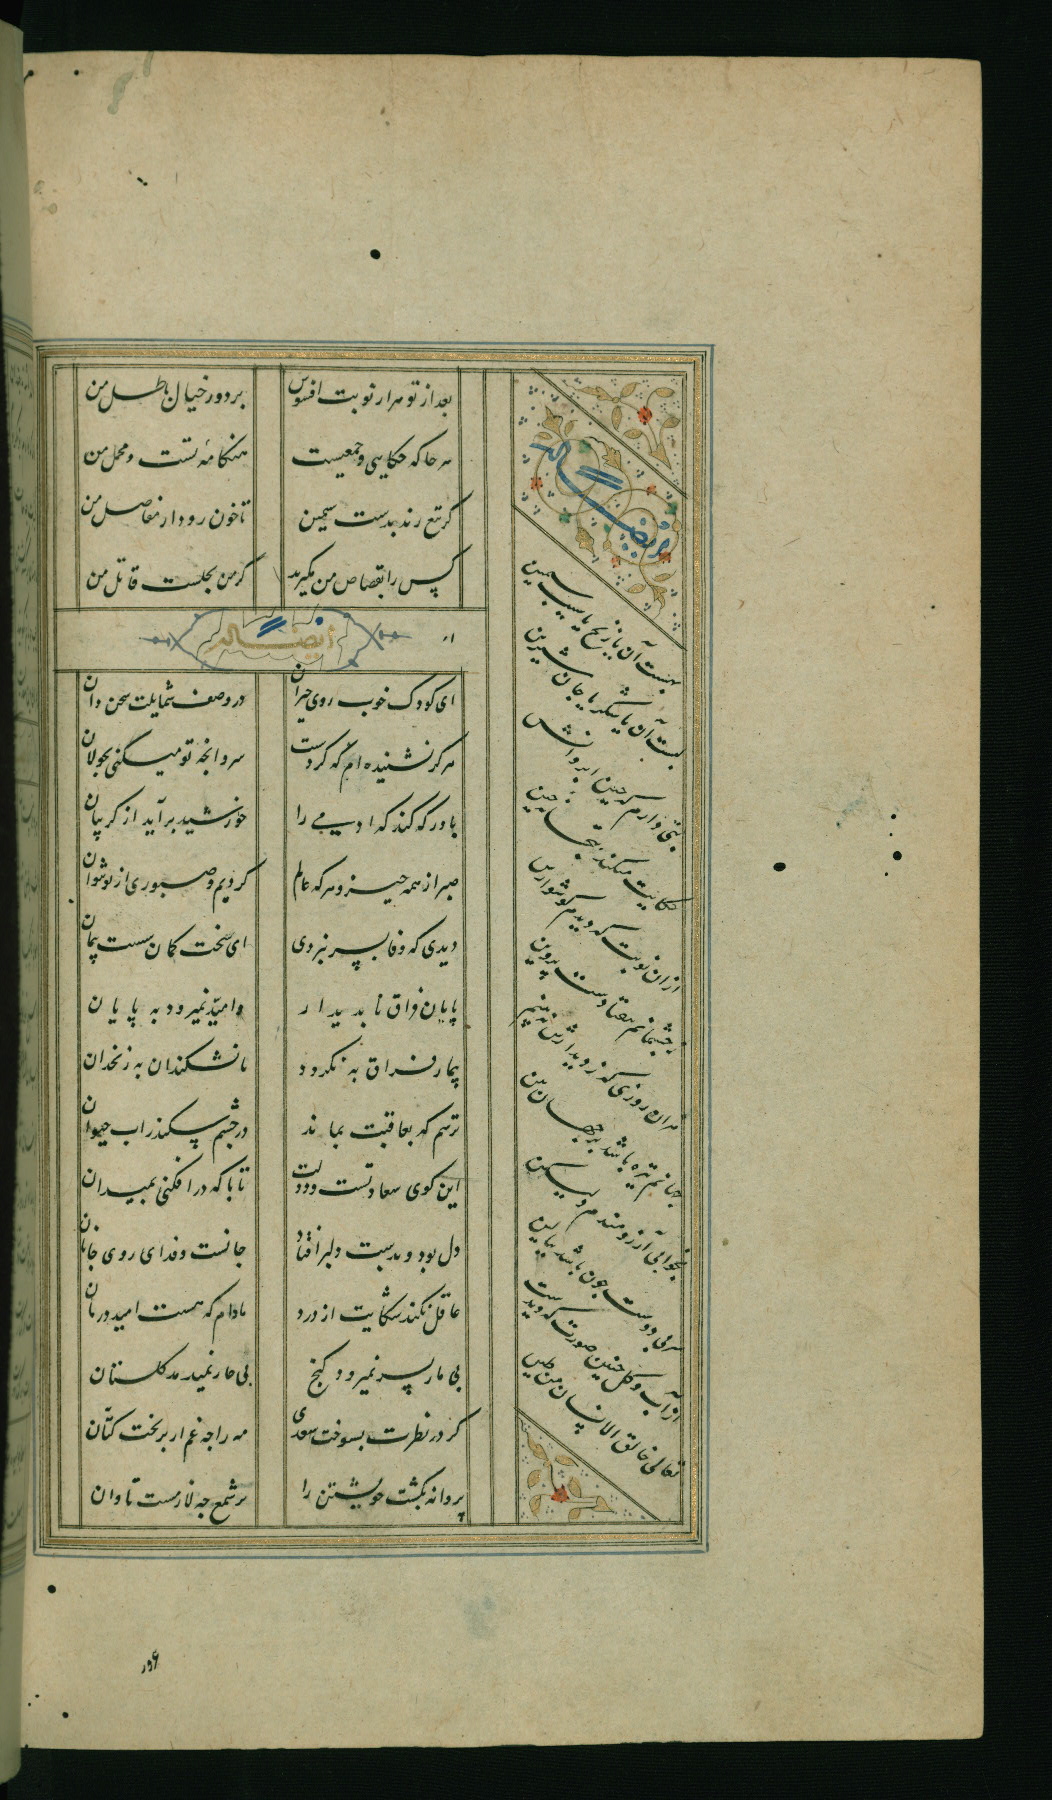 بعد از تو هزار نوبت افسوس بر دور خیال باطل من
هر جا که حکایتی و جمعیست هنگامه تست و محفل من
کر تیغ زند بدست سیمین تا خون رود از مفاصل من
کس را بقصاص من مکیرید کز من بحلست قاتل من
ایضا له
ای کودک خوب روی حیران در وصف شمایلت سخن دان
هرکز نشنیده ام که کردست سرو آنچه تو میکنی بجولان
باور که کند که ادمی را خورشید بر آید از کریبان
صبر از همه چیز و هر که عالم کردیم و صبوری از تو نتوان
دیدی که وفا بسر نبردی ای سخت کمان سست پیمان
پایان فراق ناپدیدار و امید نمیرود به پایان
بیمار فراق به نکردد تا نشکند آن به زنخدان
ترسم که بعاقبت بماند در چشم سکندر اب حیوان
این کوی سعادتست و دولت تا با که در افکنی بمیدان
دل بود و بدست دلبر افتاد جانست و فدای روی جانان
عاقل نکند شکایت از درد مادام که هست امید درمان
بی مار بسر نمیرود کنج بی خار نمیدمد کلستان
کر در نظرت بسوخت سعدی مه را چه غم ار بریخت کتان
پروانه بکشت خویشتن را بر شمع چه لازمست تاوان
و ایضا له
بهست آن یا زنخ یا سیب سیمین
لبست آن یا شکر یا جان شیرین
بتی دارم که چین ابروانش
حکایت میکند بتخانه چین
از آن نوبت که دیدم کوشوارش
ز چشمانم بیفتادست پروین
هر ان روزی که زو دیدارش نبینم
جهانم تیره باشد بر جهان بین
بخوابی آرزومندم ولیکن
سر بی دوست چون باشد ببالین
از آب و کل چنین صورت که دیدست
تعالی خالق الانسان من طین